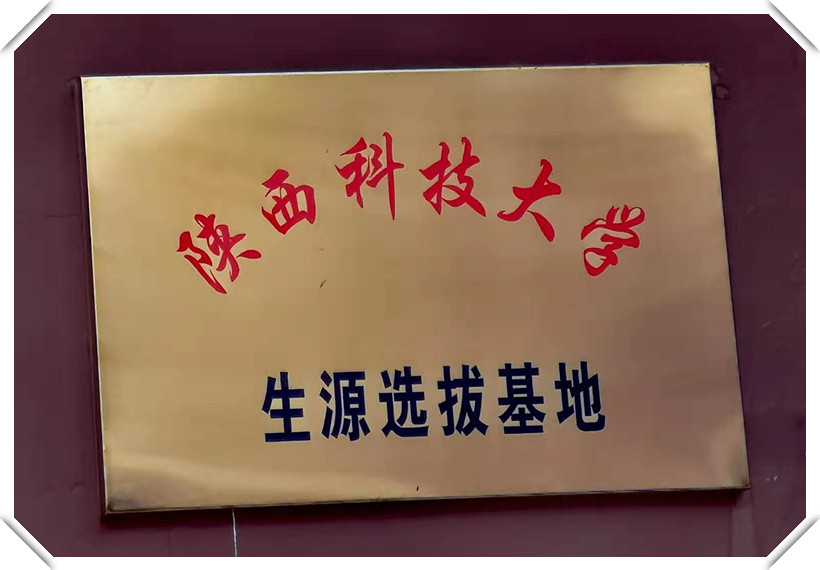 陕西科技大学
生源选拔基地